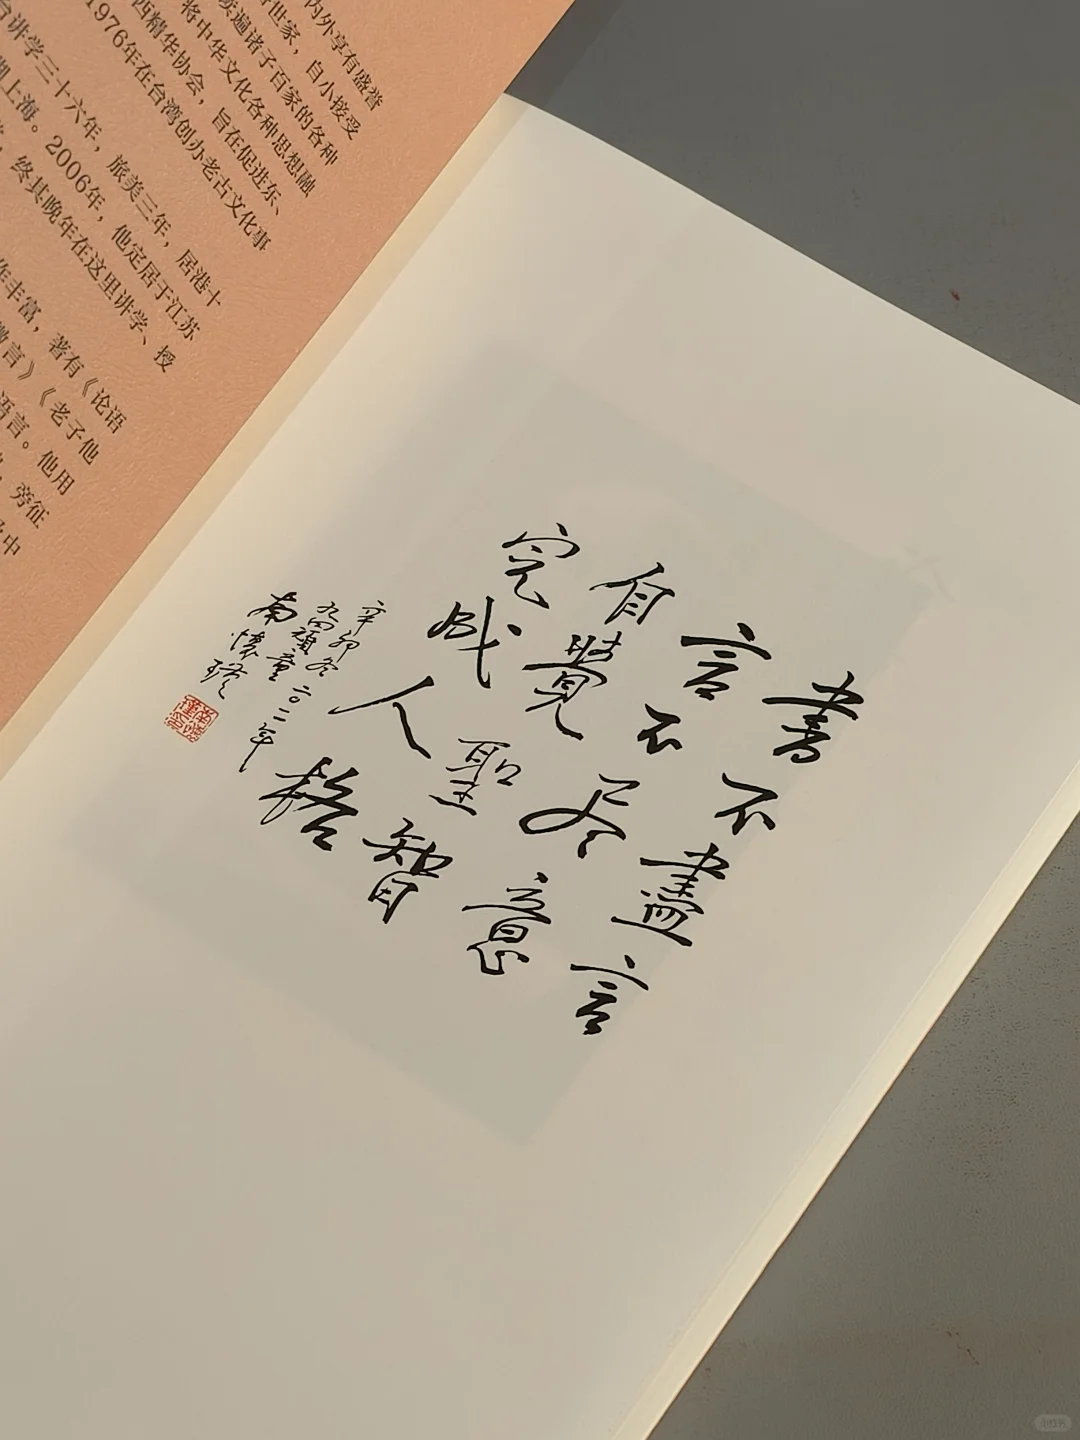 内外享有盛誉
世家，自小接受
读遍诸子百家的各种
将中华文化各种思想融
西精华协会，旨在促进东、
1976年在台湾创办老古文化事
台讲学三十六年，旅美三年，居港十
上海。2006年，他定居于江苏
，终其晚年在这里讲学、授
作丰富，著有《论语
微言》《老子他
语言。他用
，旁征
中
書不盡言
言不尽意
自覺聖智
完成人格
辛卯冬二〇一一年
九四頑童
南懷瑾